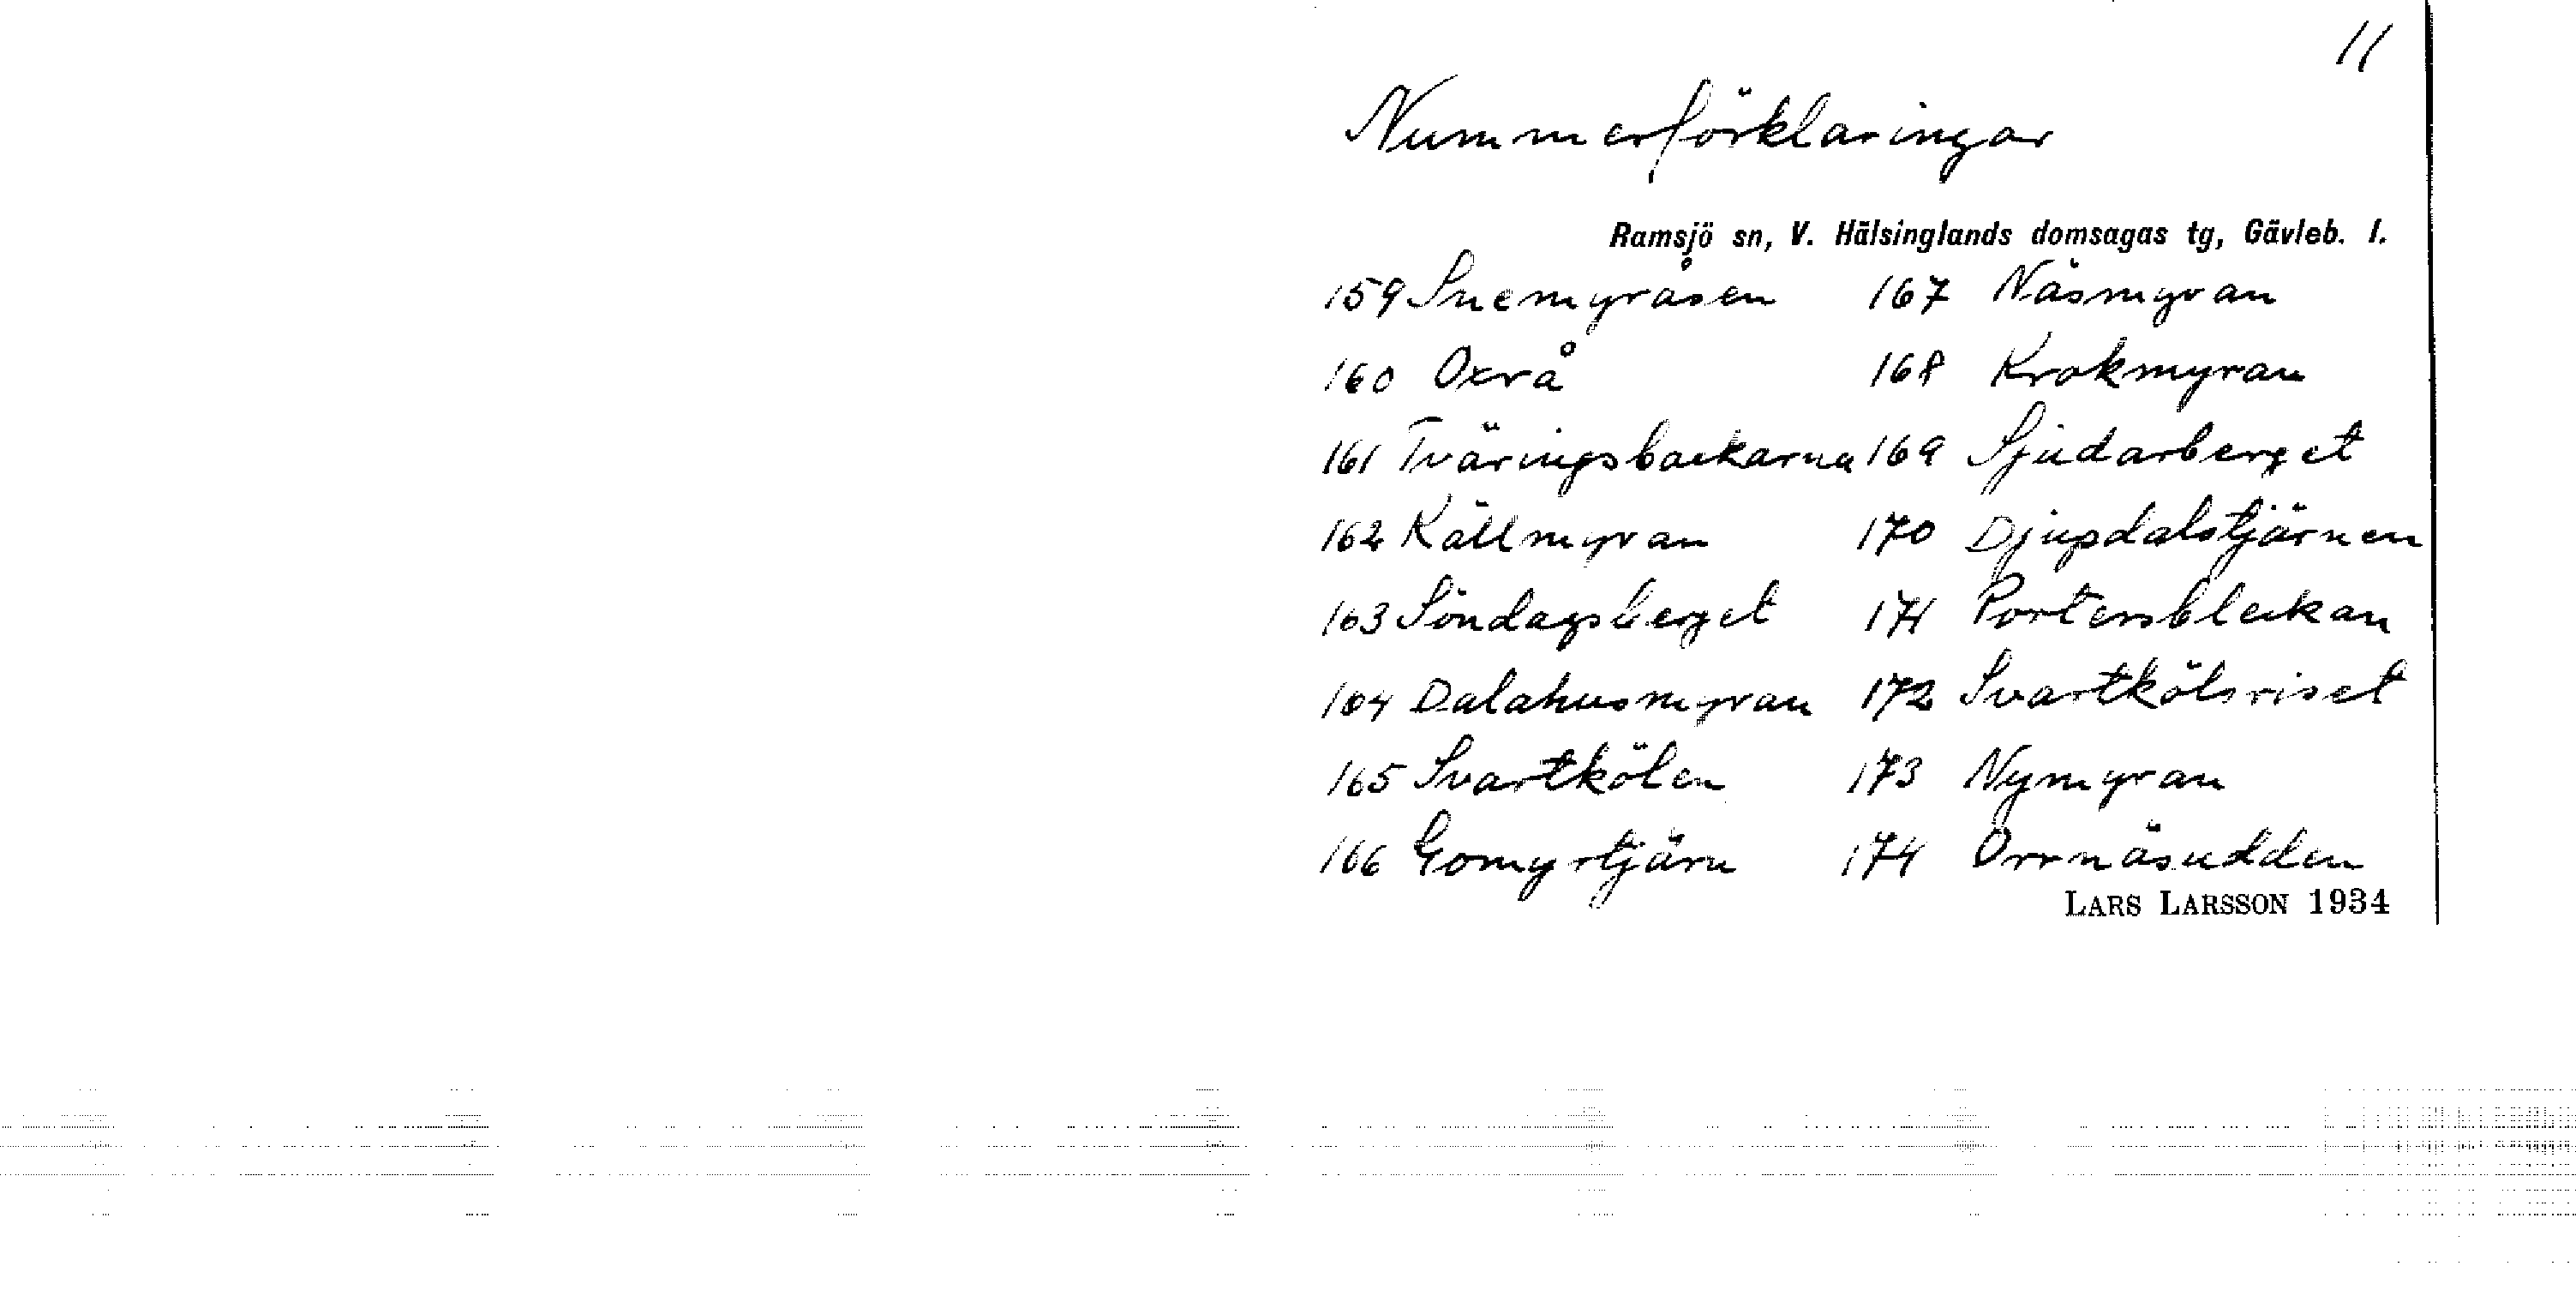 11
Nummerförklaringar
Ramsjö sn, V. Hälsinglands domsagas tg, Gävleb. l.
159 Snemyråsen 167 Näsmyran
160 Oxrå 168 Krokmyran
161 Tväringsbackarna 169 Sjudarberget
162 Källmyran 170 Djupdalstjärnen
163 Söndagsberget 171 Portersbleckan
164 Dalahusmyran 172 Svartkölsriset
165 Svartkölen 173 Nymyran
166 Gomyrtjärn 174 Orrnäsudden
LARS LARSSON 1934